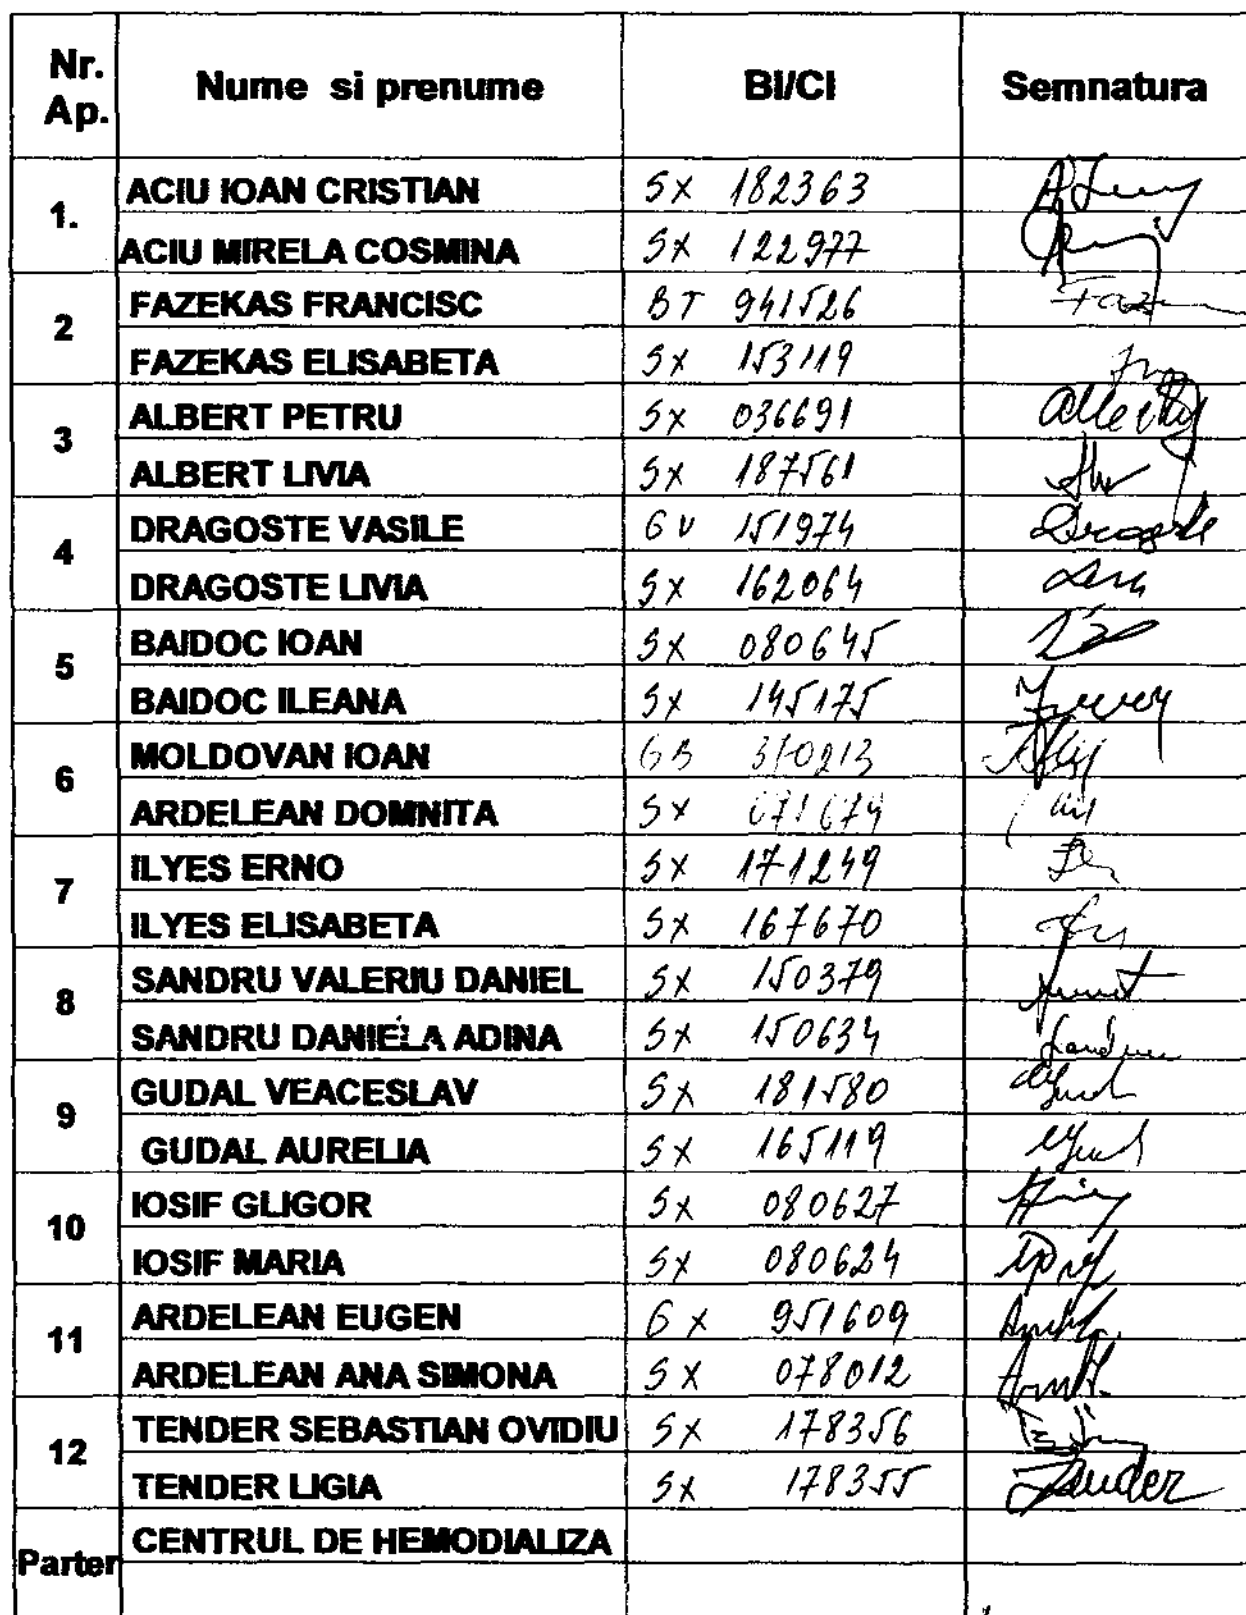 Nr. Ap. Nume si prenume BI/CI Semnatura
1. ACIU IOAN CRISTIAN SX 182363
ACIU MIRELA COSMINA SX 122977
2 FAZEKAS FRANCISC BT 941526
FAZEKAS ELISABETA SX 153119
3 ALBERT PETRU SX 036691
ALBERT LIVIA SX 187561
4 DRAGOSTE VASILE GV 151974 Dragoste
DRAGOSTE LIVIA SX 162064
5 BAIDOC IOAN SX 080645
BAIDOC ILEANA SX 145175
6 MOLDOVAN IOAN GB
ARDELEAN DOMNITA SX 071674
7 ILYES ERNO SX 171249
ILYES ELISABETA SX 167670
8 SANDRU VALERIU DANIEL SX 150379
SANDRU DANIELA ADINA SX 150634 Sandru
9 GUDAL VEACESLAV SX 181580
GUDAL AURELIA SX 165119
10 IOSIF GLIGOR SX 080627
IOSIF MARIA SX 080624
11 ARDELEAN EUGEN GX 951609
ARDELEAN ANA SIMONA SX 078012
12 TENDER SEBASTIAN OVIDIU SX 178356
TENDER LIGIA SX 178355 Tender
Parter CENTRUL DE HEMODIALIZA